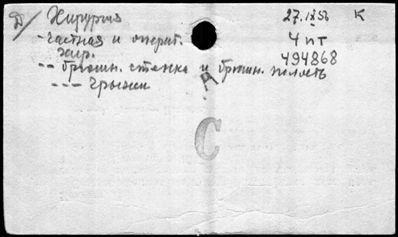 Д/ Хирургия 27.IX56 К
- частная и операт. 4 пт
хир. 494868
-- брюшн. стенка и брюшн. полость
--- Грыжи
С